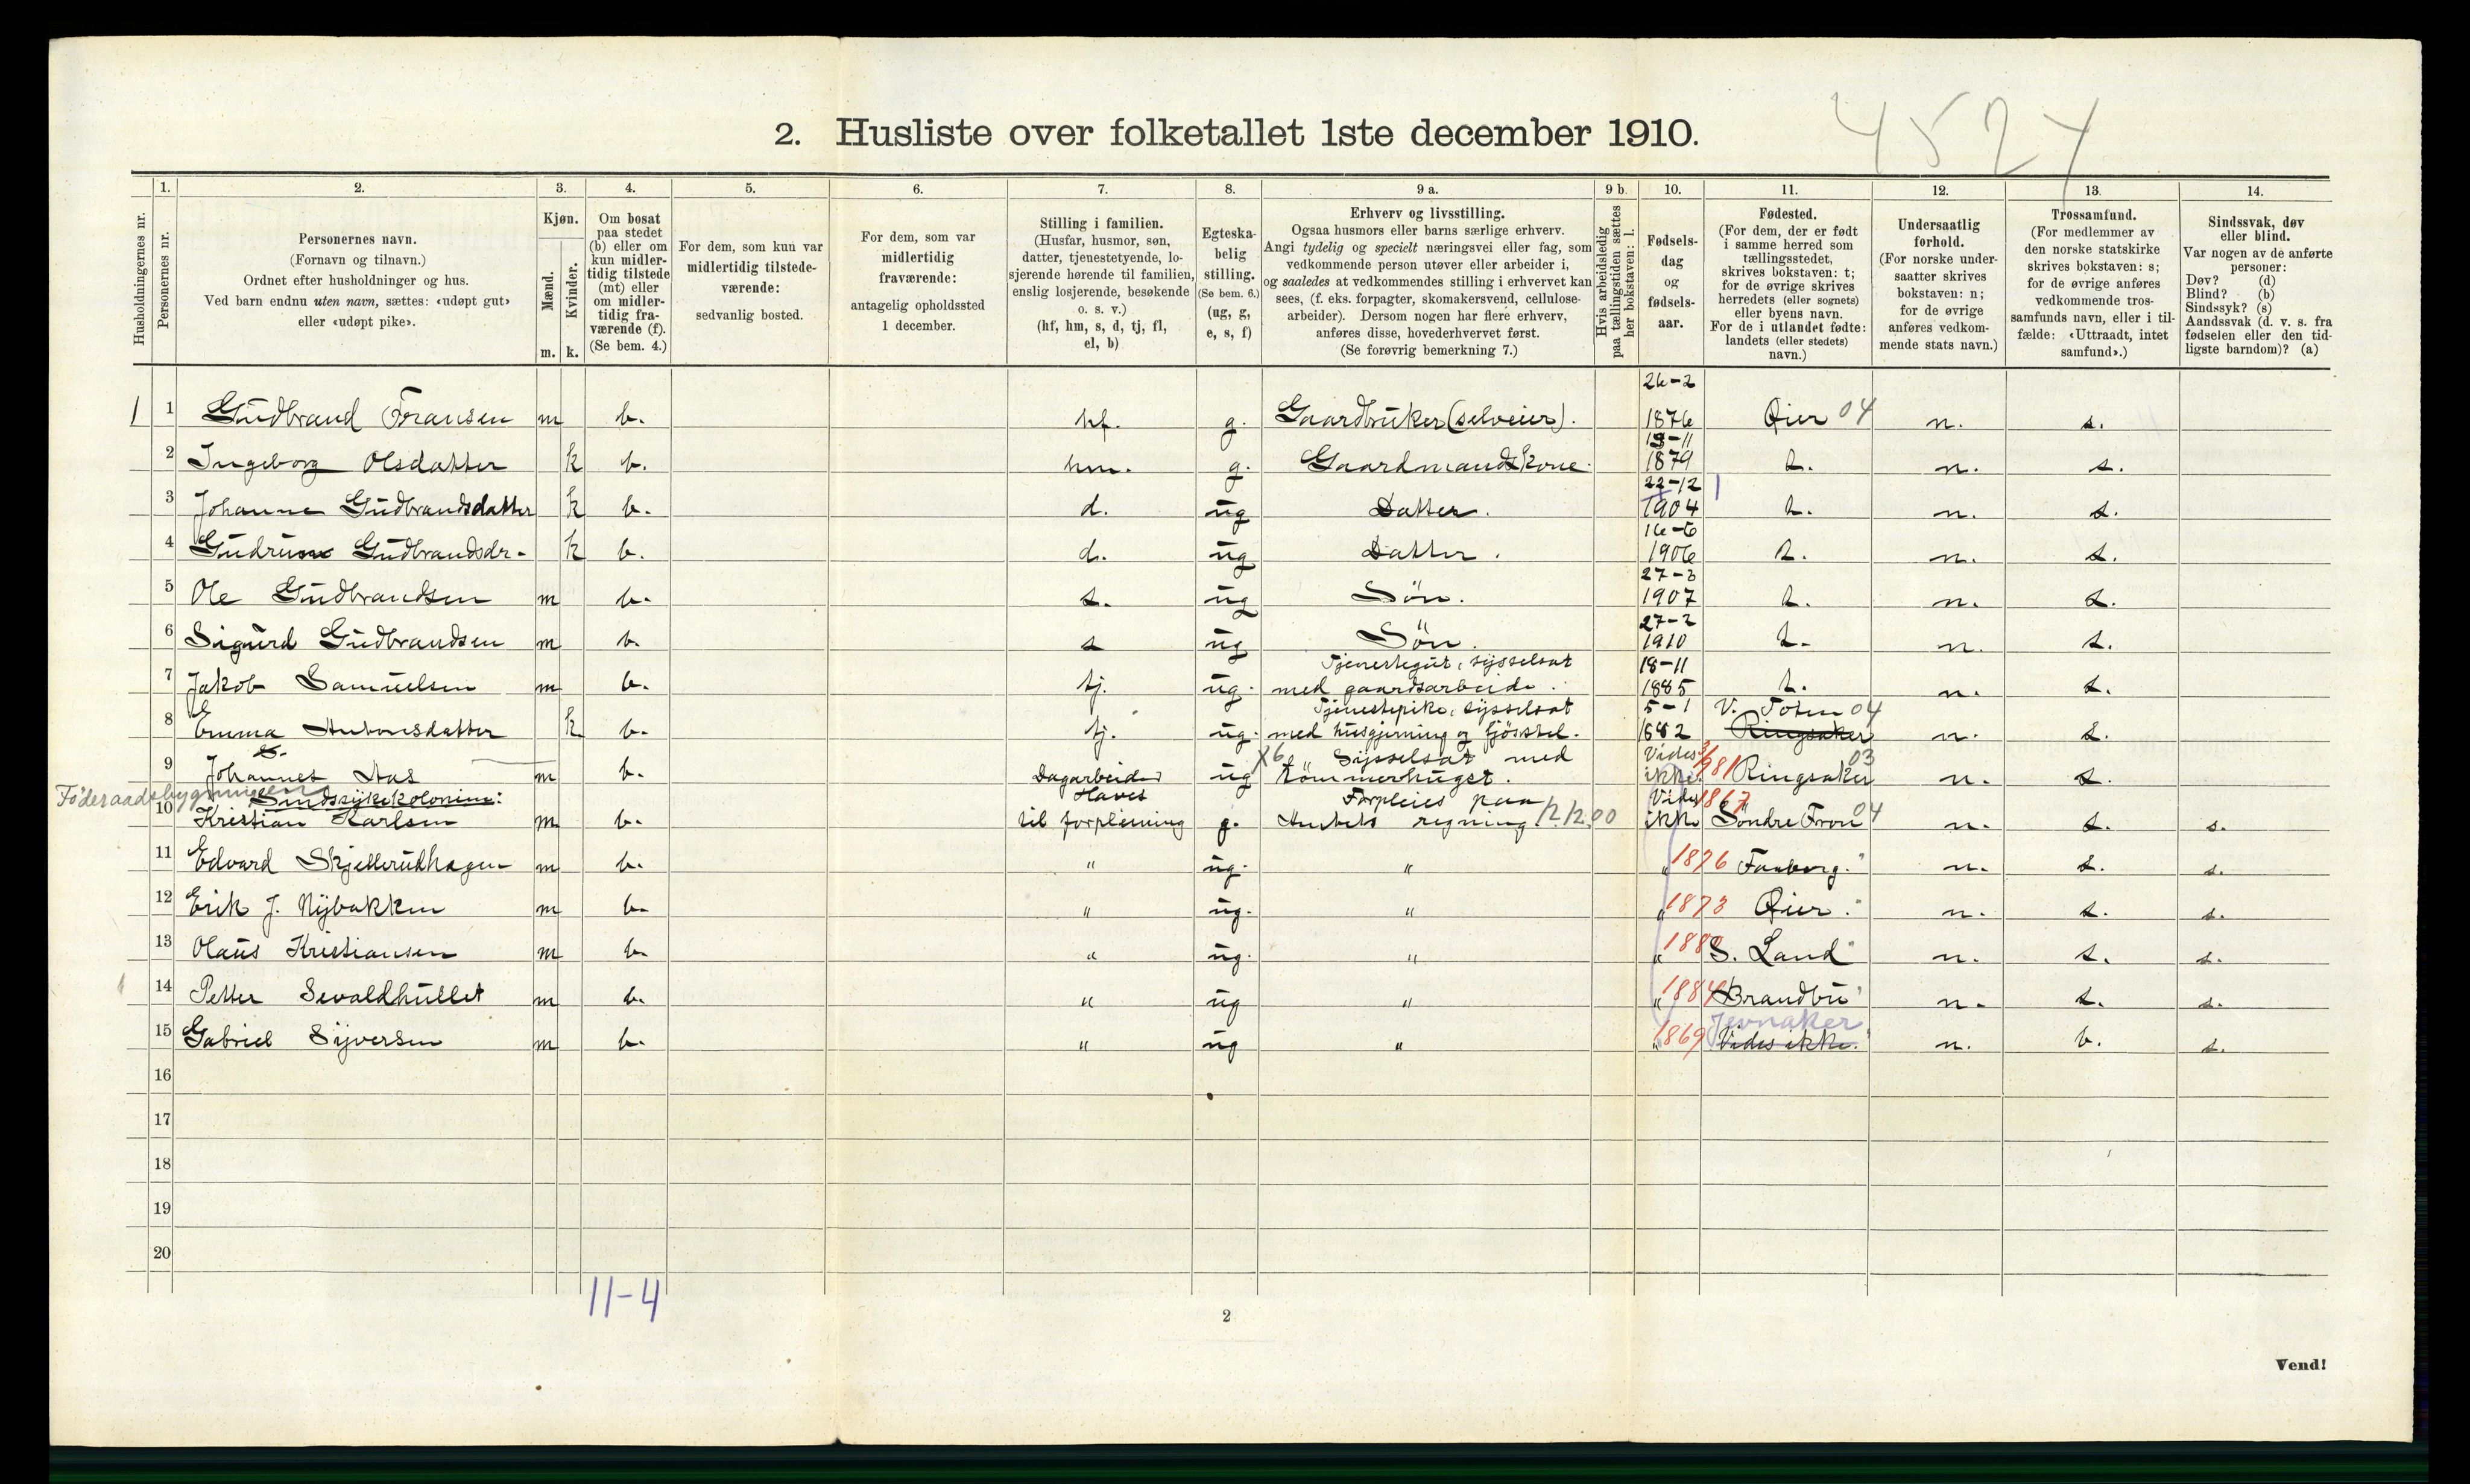 4524
2. Husliste over folketallet 1ste december 1910.
1. 2. 3. 4. 5. 6. 7. 8. 9 a. 9 b. 10. 11. 12. 13. 14.
Husholdningernes nr.
Personernes nr.
Personernes navn.
(Fornavn og tilnavn.)
Ordnet efter husholdninger og hus.
Ved barn endnu uten navn, sættes: «udøpt gut»
eller «udøpt pike».
Kjøn.
Mænd.
Kvinder.
m. k.
Om bosat
paa stedet
(b) eller om
kun midler-
tidig tilstede
(mt) eller
om midler-
tidig fra-
værende (f).
(Se bem. 4.)
For dem, som kun var
midlertidig tilstede-
værende:
sedvanlig bosted.
For dem, som var
midlertidig
fraværende:
antagelig opholdssted
1 december.
Stilling i familien.
(Husfar, husmor, søn,
datter, tjenestetyende, lo-
sjerende hørende til familien,
enslig losjerende, besøkende
o. s. v.)
(hf, hm, s, d, tj, fl,
el, b)
Egteska-
belig
stilling.
(Se bem. 6.)
(ug, g,
e, s, f)
Erhverv og livsstilling.
Ogsaa husmors eller barns særlige erhverv.
Angi tydelig og specielt næringsvei eller fag, som
vedkommende person utøver eller arbeider i,
og saaledes at vedkommendes stilling i erhvervet kan
sees, (f. eks. forpagter, skomakersvend, cellulose-
arbeider). Dersom nogen har flere erhverv,
anføres disse, hovederhvervet først.
(Se forøvrig bemerkning 7.)
Hvis arbeidsledig
paa tællingstiden sættes
her bokstaven: l.
Fødsels-
dag
og
fødsels-
aar.
Fødested.
(For dem, der er født
i samme herred som
tællingsstedet,
skrives bokstaven: t;
for de øvrige skrives
herredets (eller sognets)
eller byens navn.
For de i utlandet fødte:
landets (eller stedets)
navn.)
Undersaatlig
forhold.
(For norske under-
saatter skrives
bokstaven: n;
for de øvrige
anføres vedkom-
mende stats navn.)
Trossamfund.
(For medlemmer av
den norske statskirke
skrives bokstaven: s;
for de øvrige anføres
vedkommende tros-
samfunds navn, eller i til-
fælde: «Uttraadt, intet
samfund».)
Sindssvak, døv
eller blind.
Var nogen av de anførte
personer:
Døv? (d)
Blind? (b)
Sindssyk? (s)
Aandssvak (d. v. s. fra
fødselen eller den tid-
ligste barndom)? (a)
26-2
1 1 Gudbrand Fransen m b. hf. g. Gaardbruker (selveier). 1876 Øier 04 n. s.
13-11
2 Ingeborg Olsdatter k b. hm. g. Gaardmandskone. 1879 t. n. s.
22-12
3 Johanne Gudbrandsdatter k b. d. ug Datter. 1904 t. n. s.
16-6
4 Gudrun Gudbrandsdr. k b. d. ug Datter. 1906 t. n. s.
27-3
5 Ole Gudbrandsen m b. s. ug Søn. 1907 t. n. s.
27-2
6 Sigurd Gudbrandsen m b. s ug Søn. 1910 t. n. s.
Tjenestegut, sysselsat 18-11
7 Jakob Samuelsen m b. tj. ug. med gaardsarbeide. 1885 t. n. s.
Tjenestepike, sysselsat 5-1 V. Toten 04
8 Emma Antonsdatter k b. tj. ug. med husgjerning og fjösstel. 1882 Ringsaker n. s.
X6 Sysselsat med Vides 3/7 03
9 Johannes Aas m b. Dagarbeider ug tömmerhugst. ikke. 881 Ringsaker n. s.
Föderaadsbygningen
Sindssykekolonien: Haves Forpleies paa Vides 1867
10 Kristian Karlsen m b. til forpleining g. Amtets regning. 1212.00 ikke Söndre Fron 04 n. s. s.
11 Edvard Skjellerudhagen m b. " ug. " " 1876 Faaberg. " n. s. s.
12 Erik J. Nybakken m b. " ug. " " 1873 Øier. " n. s. s.
13 Olaus Kristiansen m b. " ug. " " S. Land " n. s. s.
14 Petter Sevaldhullet m b. " ug " " 1884 Brandbu " n. s. s.
Jevnaker
15 Gabriel Syversen m b. " ug " " 1869 Vides ikke. " n. b. s.
16
17
18
19
20
11-4
2
Vend!